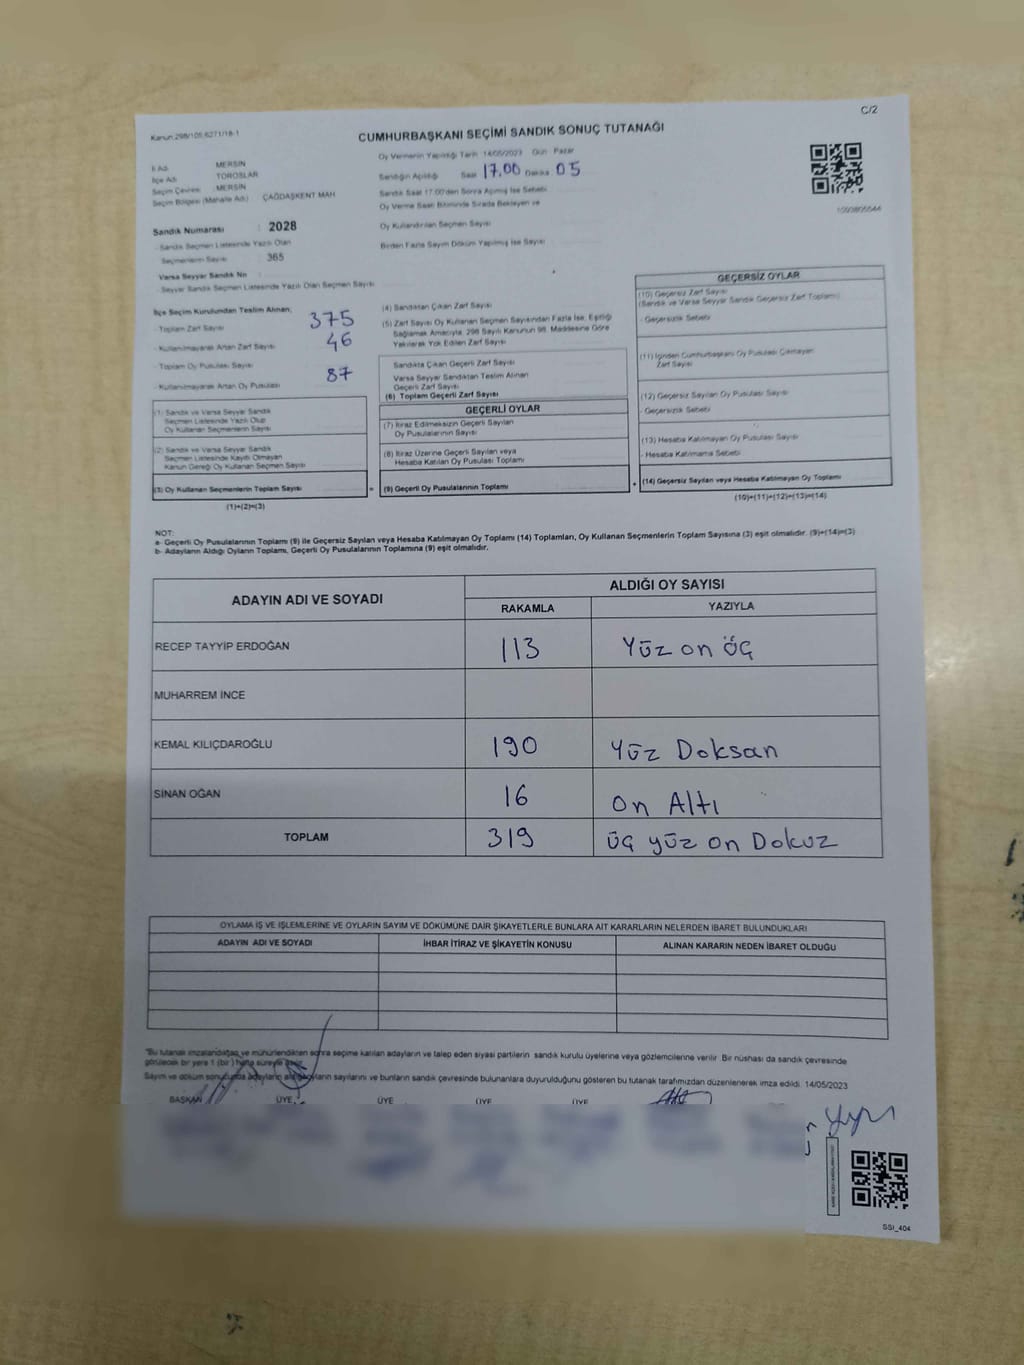 C/2
Kanun:298/105,6271/18-1
CUMHURBAŞKANI SEÇİMİ SANDIK SONUÇ TUTANAĞI
İl Adı MERSİN
İlçe Adı TOROSLAR
Seçim Çevresi MERSİN
Seçim Bölgesi (Mahalle Adı) ÇAĞDAŞKENT MAH
Oy Vermenin Yapıldığı Tarih 14/05/2023 Gün Pazar
Sandığın Açıldığı Saat 17.00 Dakika 05
Sandık Saat 17.00'den Sonra Açılmış İse Sebebi
Oy Verme Saati Bitiminde Sırada Bekleyen ve
Oy Kullandırılan Seçmen Sayısı
Birden Fazla Sayım Döküm Yapılmış İse Sayısı
1090805544
Sandık Numarası : 2028
- Sandık Seçmen Listesinde Yazılı Olan
Seçmenlerin Sayısı : 365
Varsa Seyyar Sandık No :
- Seyyar Sandık Seçmen Listesinde Yazılı Olan Seçmen Sayısı
İlçe Seçim Kurulundan Teslim Alınan;
- Toplam Zarf Sayısı 375
- Kullanılmayarak Artan Zarf Sayısı 46
- Toplam Oy Pusulası Sayısı
- Kullanılmayarak Artan Oy Pusulası 87
(1) Sandık ve Varsa Seyyar Sandık
Seçmen Listesinde Yazılı Olup
Oy Kullanan Seçmenlerin Sayısı
(2) Sandık ve Varsa Seyyar Sandık
Seçmen Listesinde Kayıtlı Olmayan
Kanun Gereği Oy Kullanan Seçmen Sayısı
(3) Oy Kullanan Seçmenlerin Toplam Sayısı
(1)+(2)=(3)
(4) Sandıktan Çıkan Zarf Sayısı
(5) Zarf Sayısı Oy Kullanan Seçmen Sayısından Fazla İse, Eşitliği
Sağlamak Amacıyla, 298 Sayılı Kanunun 98. Maddesine Göre
Yakılarak Yok Edilen Zarf Sayısı
Sandıkta Çıkan Geçerli Zarf Sayısı
Varsa Seyyar Sandıktan Teslim Alınan
Geçerli Zarf Sayısı
(6) Toplam Geçerli Zarf Sayısı
GEÇERLİ OYLAR
(7) İtiraz Edilmeksizin Geçerli Sayılan
Oy Pusulalarının Sayısı
(8) İtiraz Üzerine Geçerli Sayılan veya
Hesaba Katılan Oy Pusulası Toplamı
= (9) Geçerli Oy Pusulalarının Toplamı
GEÇERSİZ OYLAR
(10) Geçersiz Zarf Sayısı
(Sandık ve Varsa Seyyar Sandık Geçersiz Zarf Toplamı)
- Geçersizlik Sebebi
(11) İçinden Cumhurbaşkanı Oy Pusulası Çıkmayan
Zarf Sayısı
(12) Geçersiz Sayılan Oy Pusulası Sayısı
- Geçersizlik Sebebi
(13) Hesaba Katılmayan Oy Pusulası Sayısı
- Hesaba Katılmama Sebebi
+ (14) Geçersiz Sayılan veya Hesaba Katılmayan Oy Toplamı
(10)+(11)+(12)+(13)=(14)
NOT:
a- Geçerli Oy Pusulalarının Toplamı (9) ile Geçersiz Sayılan veya Hesaba Katılmayan Oy Toplamı (14) Toplamları, Oy Kullanan Seçmenlerin Toplam Sayısına (3) eşit olmalıdır. (9)+(14)=(3)
b- Adayların Aldığı Oyların Toplamı, Geçerli Oy Pusulalarının Toplamına (9) eşit olmalıdır.
ADAYIN ADI VE SOYADI
ALDIĞI OY SAYISI
RAKAMLA YAZIYLA
RECEP TAYYİP ERDOĞAN 113 Yüz on üç
MUHARREM İNCE
KEMAL KILIÇDAROĞLU 190 Yüz Doksan
SİNAN OĞAN 16 on Altı
TOPLAM 319 üç yüz on Dokuz
OYLAMA İŞ VE İŞLEMLERİNE VE OYLARIN SAYIM VE DÖKÜMÜNE DAİR ŞİKAYETLERLE BUNLARA AİT KARARLARIN NELERDEN İBARET BULUNDUKLARI
ADAYIN ADI VE SOYADI İHBAR İTİRAZ VE ŞİKAYETİN KONUSU ALINAN KARARIN NEDEN İBARET OLDUĞU
"Bu tutanak imzalandıktan ve mühürlendikten sonra seçime katılan adayların ve talep eden siyasi partilerin sandık kurulu üyelerine veya gözlemcilerine verilir. Bir nüshası da sandık çevresinde
görülecek bir yere 1 (bir) hafta süreyle asılır.
Sayım ve döküm sonucunda adayların aldığı oyların sayılarını ve bunların sandık çevresinde bulunanlara duyurulduğunu gösteren bu tutanak tarafımızdan düzenlenerek imza edildi. 14/05/2023
BAŞKAN ÜYE ÜYE ÜYE ÜYE
SSI_404